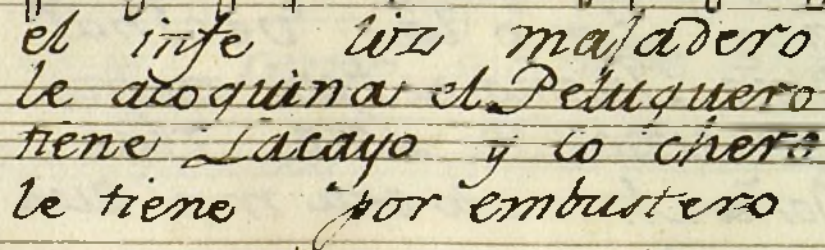 el infe liz majadero
le acoquina el Peluquero
tiene Lacayo y co chero
le tiene por embustero